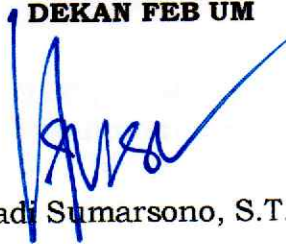 DEKAN FEB UM
adi Sumarsono, S.T.